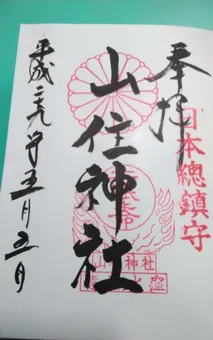 奉拝
日本總鎮守
山住神社
平成二十九年五月五日